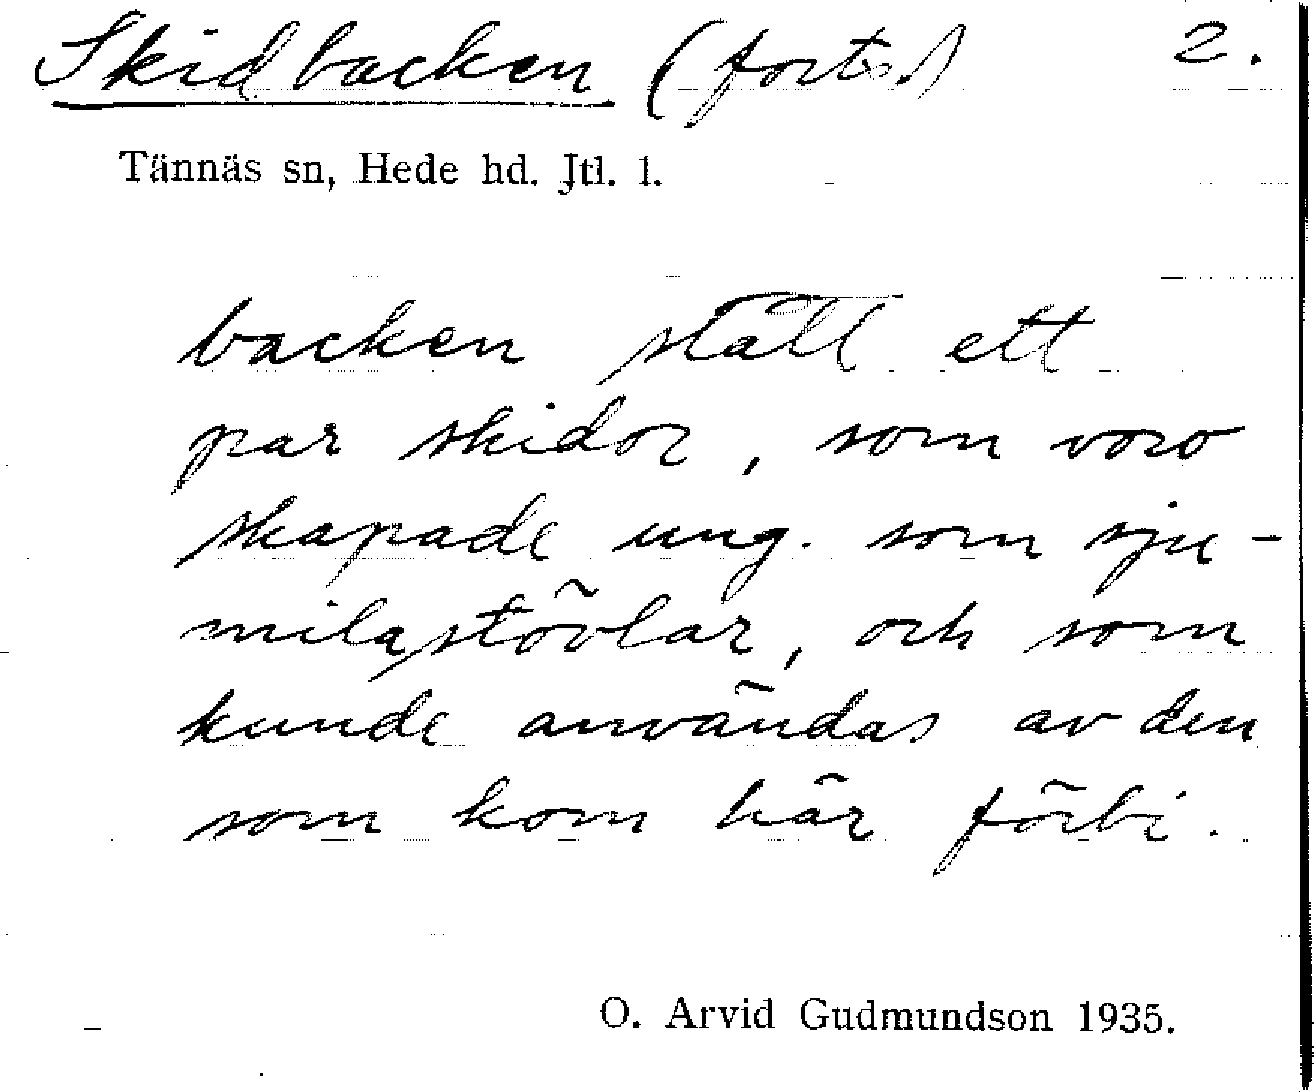 Skidbacken (forts.) 2.
Tännäs sn, Hede hd. Jtl. l.
backen ställt ett
par skidor, som voro
skapade ung. som sju-
milastövlar, och som
kunde användas av den
som kom här förbi.
O. Arvid Gudmundson 1935.